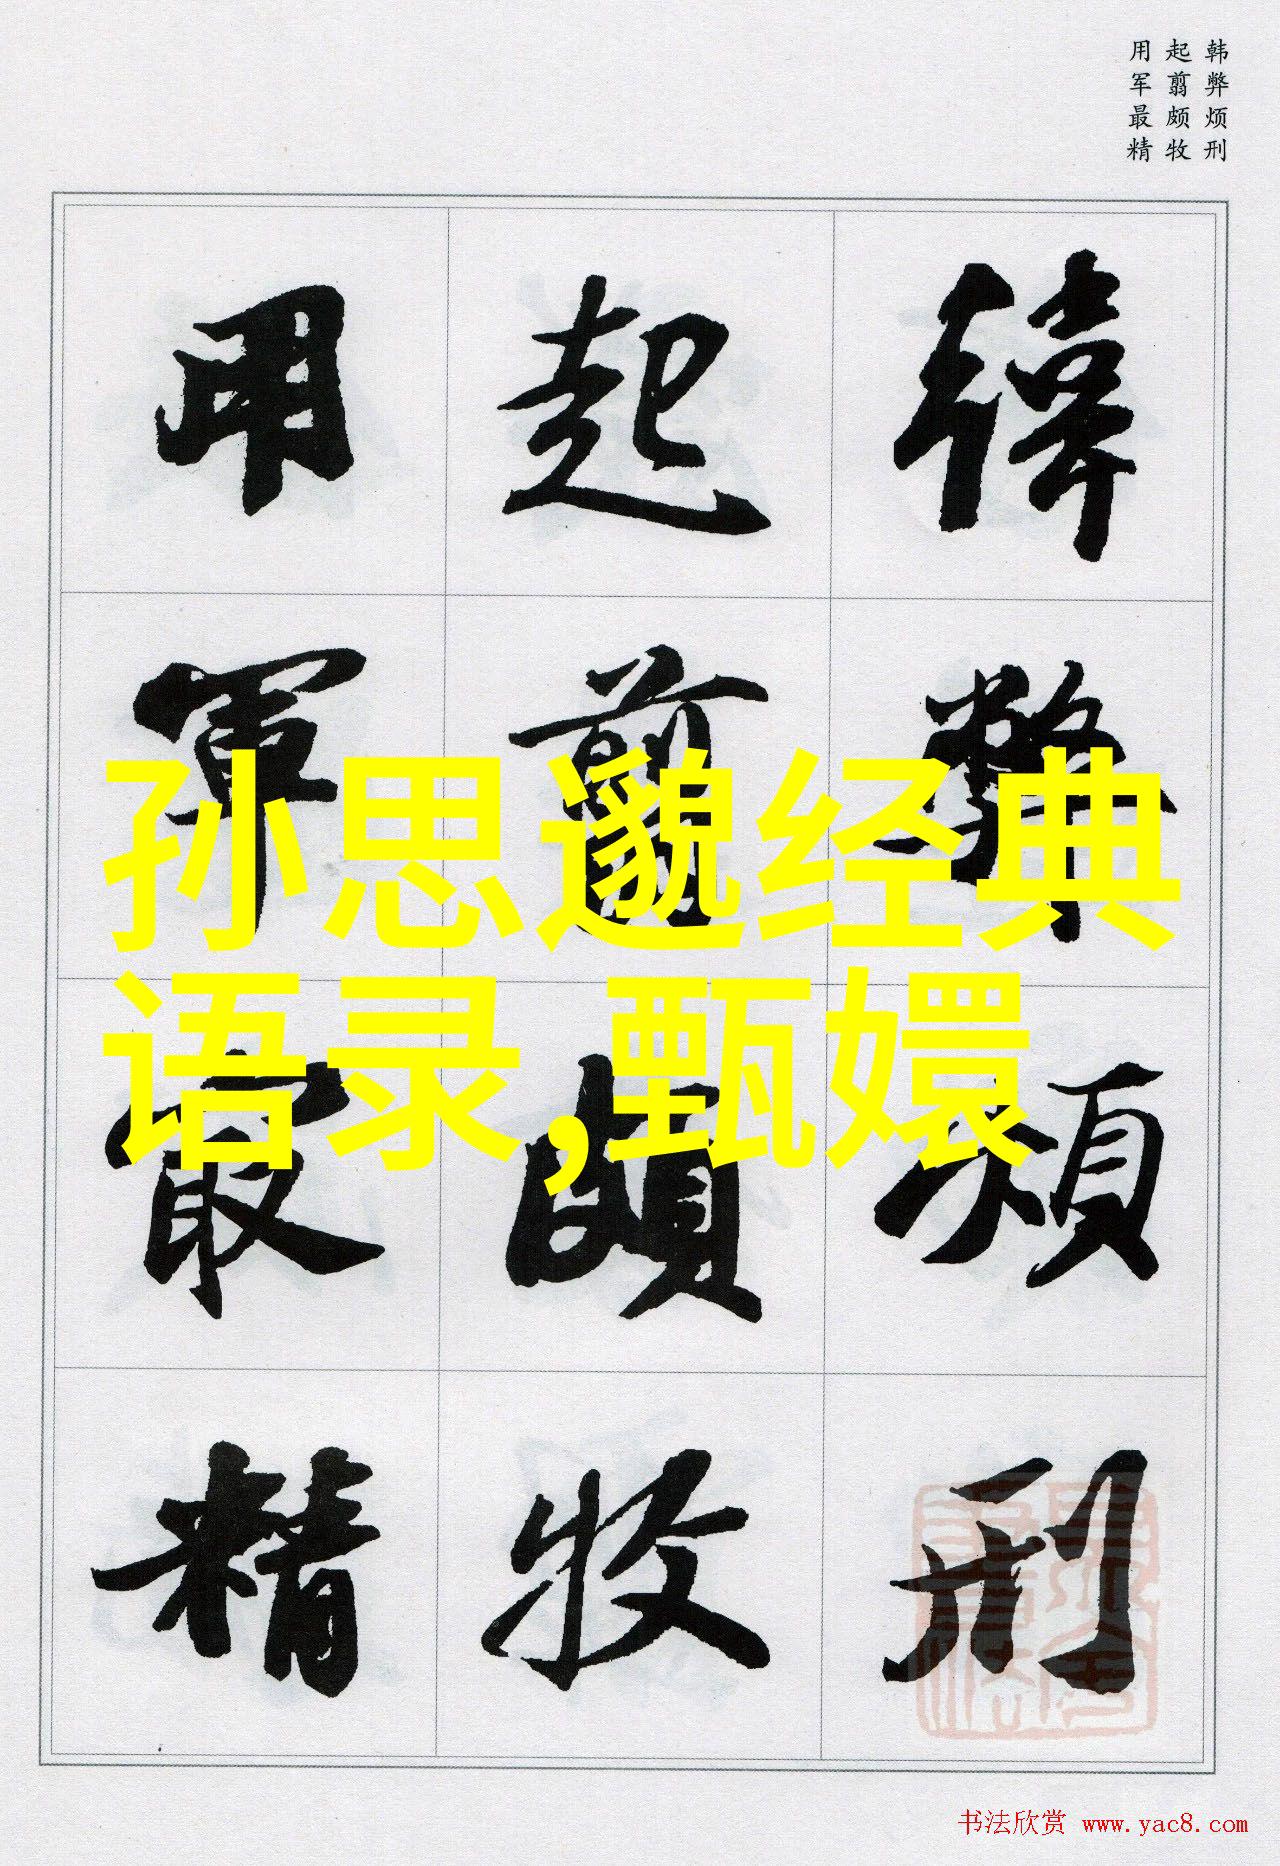 韩弊烦刑
起翦颇牧
用军最精
韩弊烦刑
起翦颇牧
用军最精
孙思邈经典
语录,甄嬛
书法欣赏 www.yac8.com